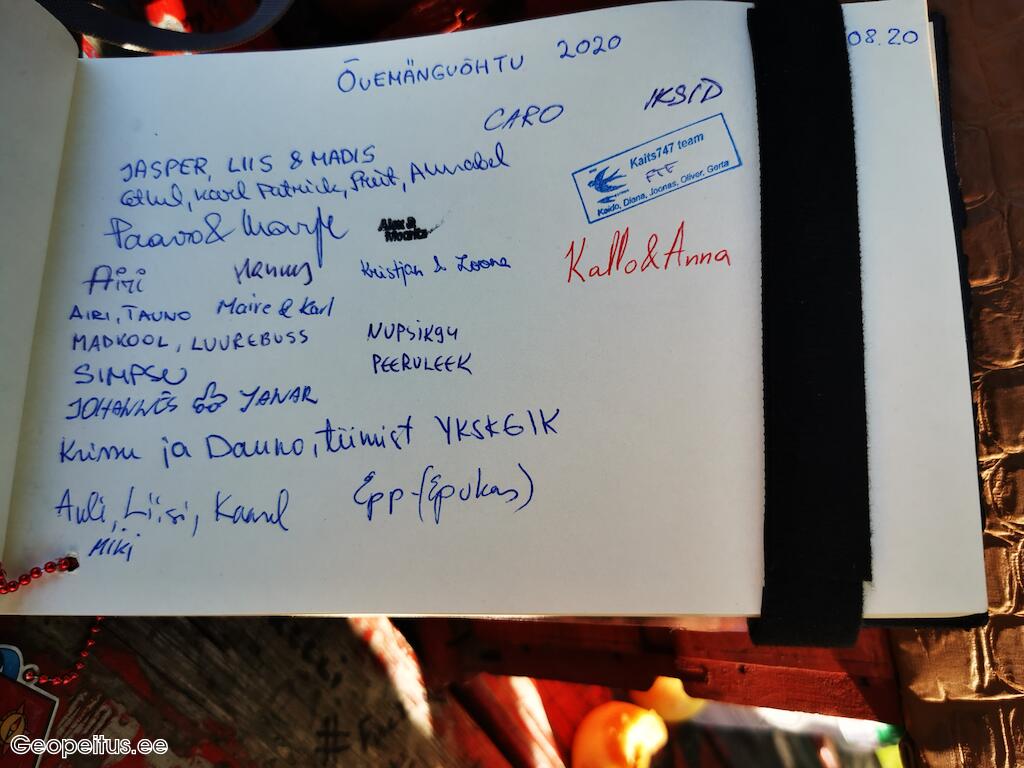 ÕUEMÄNGUÕHTU 2020
08.20
CARO
IKSID
JASPER, LIIS & MADIS
Kaits747 team
FTF
Kaido, Diana, Joonas, Oliver, Gerta
Karl Patrick, Priit, Annabel
Paavo & Marje
Alex &
Mourits
Airi
Hannus
Kristjan & Loona
Kallo & Anna
AIRI, TAUNO
Maire & Karl
MADKOOL, LUUREBUSS
NUPSIK94
SIMPSU
PEERULEEK
JOHANNES
JANAR
Krissu ja Dauno, tiimist YKSKÕIK
Auli, Liisi, Kaarel
Epp-(Epukas)
MIKI
Geopeitus.ee